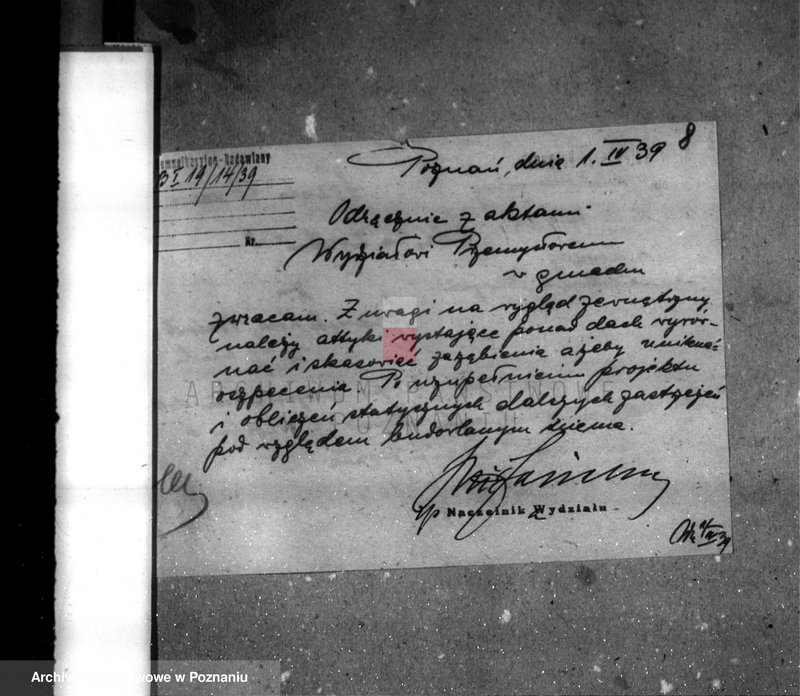 Komunikacyjno-Budowlany
B I 19/14/39
Nr.
8
Poznań, dnia 1. IV 39
Odręcznie z aktami
Wydziałowi Przemysłowemu
w gmachu
zwracam. Z uwagi na wygląd zewnętrzny
należy attyki wystające ponad dach wyrów-
nać i skasować zazębienia ażeby uniknąć
oszpecenia Po uzupełnieniu projektu
i obliczeń statycznych dalszych zastrzeżeń
pod względem budowlanym niema.
Naczelnik Wydziału
ARCHIWUM PAŃSTWOWE
Archiwum Państwowe w Poznaniu